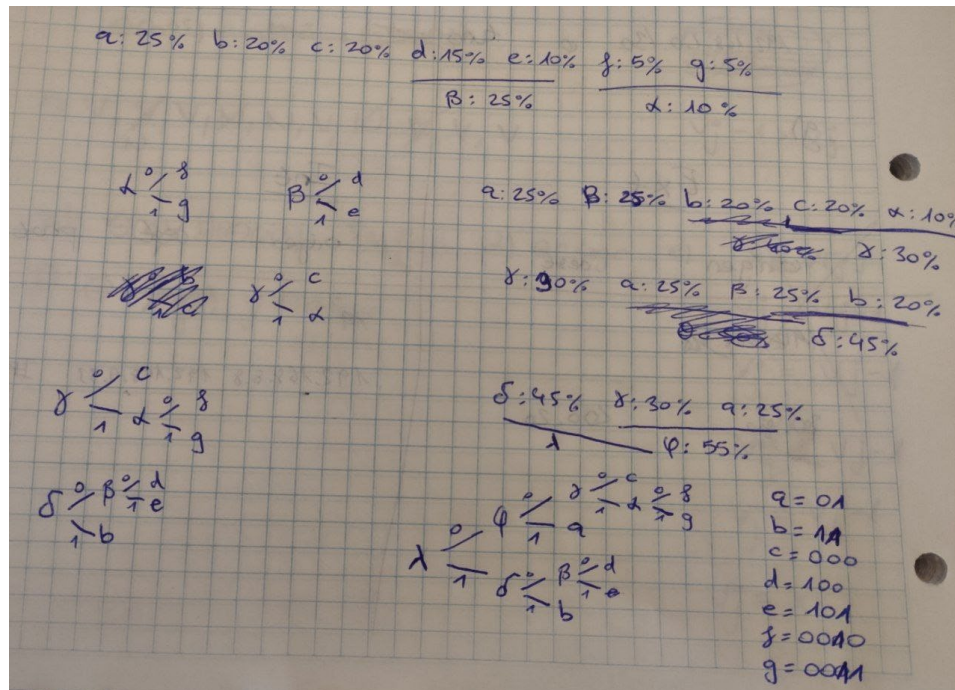 a: 25% b: 20% c: 20% d: 15% e: 10% f: 5% g: 5%
β: 25% α: 10%
α 0 f
1 g
β 0 d
1 e
a: 25% β: 25% b: 20% c: 20% α: 10%
γ: 30%
γ 0 c
1 α
γ: 30% a: 25% β: 25% b: 20%
δ: 45%
γ 0 c
1 α 0 f
1 g
δ: 45% γ: 30% a: 25%
λ φ: 55%
δ 0 β 0 d
1 e
1 b
λ 0 φ 0 γ 0 c
1 α 0 f
1 g
1 a
1 δ 0 β 0 d
1 e
1 b
a = 01
b = 11
c = 000
d = 100
e = 101
f = 0010
g = 0011